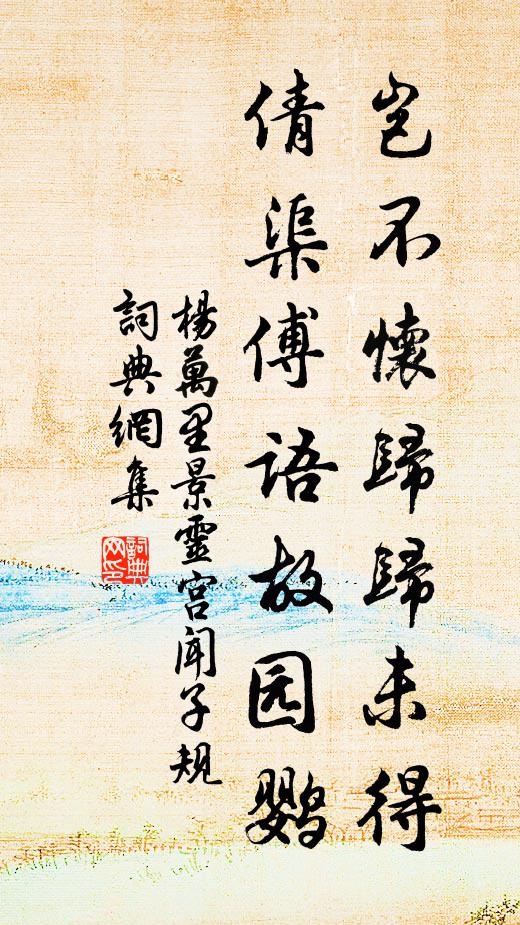 岂不懷歸歸未得
倩渠傅語故园鹦
楊萬里景靈宫聞子規
詞典網集
詞典网印